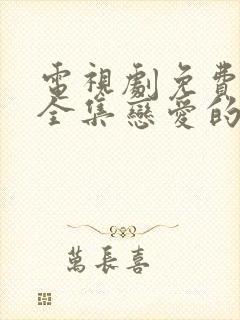 電視劇免費
全集戀愛的
萬長喜